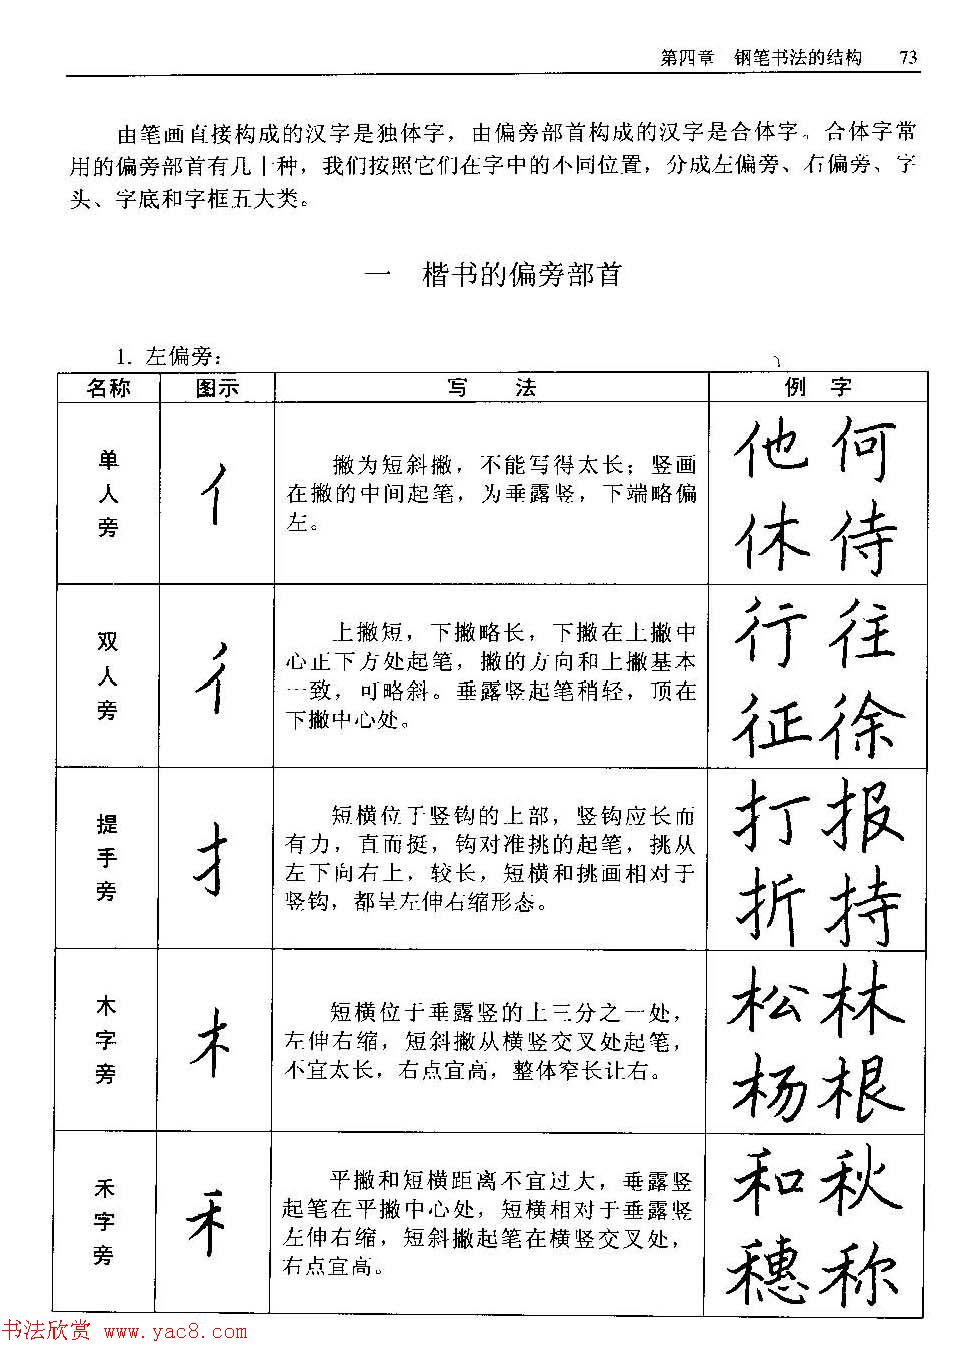 第四章　钢笔书法的结构　73
由笔画直接构成的汉字是独体字，由偏旁部首构成的汉字是合体字。合体字常
用的偏旁部首有几十种，我们按照它们在字中的不同位置，分成左偏旁、右偏旁、字
头、字底和字框五大类。
一　楷书的偏旁部首
1. 左偏旁：
名称　图示　写　法　例　字
单人旁
亻
撇为短斜撇，不能写得太长；竖画
在撇的中间起笔，为垂露竖，下端略偏
左。
他何
休侍
双人旁
彳
上撇短，下撇略长，下撇在上撇中
心正下方处起笔，撇的方向和上撇基本
一致，可略斜。垂露竖起笔稍轻，顶在
下撇中心处。
行往
征徐
提手旁
扌
短横位于竖钩的上部，竖钩应长而
有力，直而挺，钩对准挑的起笔，挑从
左下向右上，较长，短横和挑画相对于
竖钩，都呈左伸右缩形态。
打报
折持
木字旁
木
短横位于垂露竖的上三分之一处，
左伸右缩，短斜撇从横竖交叉处起笔，
不宜太长，右点宜高，整体窄长让右。
松林
杨根
禾字旁
禾
平撇和短横距离不宜过大，垂露竖
起笔在平撇中心处，短横相对于垂露竖
左伸右缩，短斜撇起笔在横竖交叉处，
右点宜高。
和秋
穗称
书法欣赏 www.yac8.com